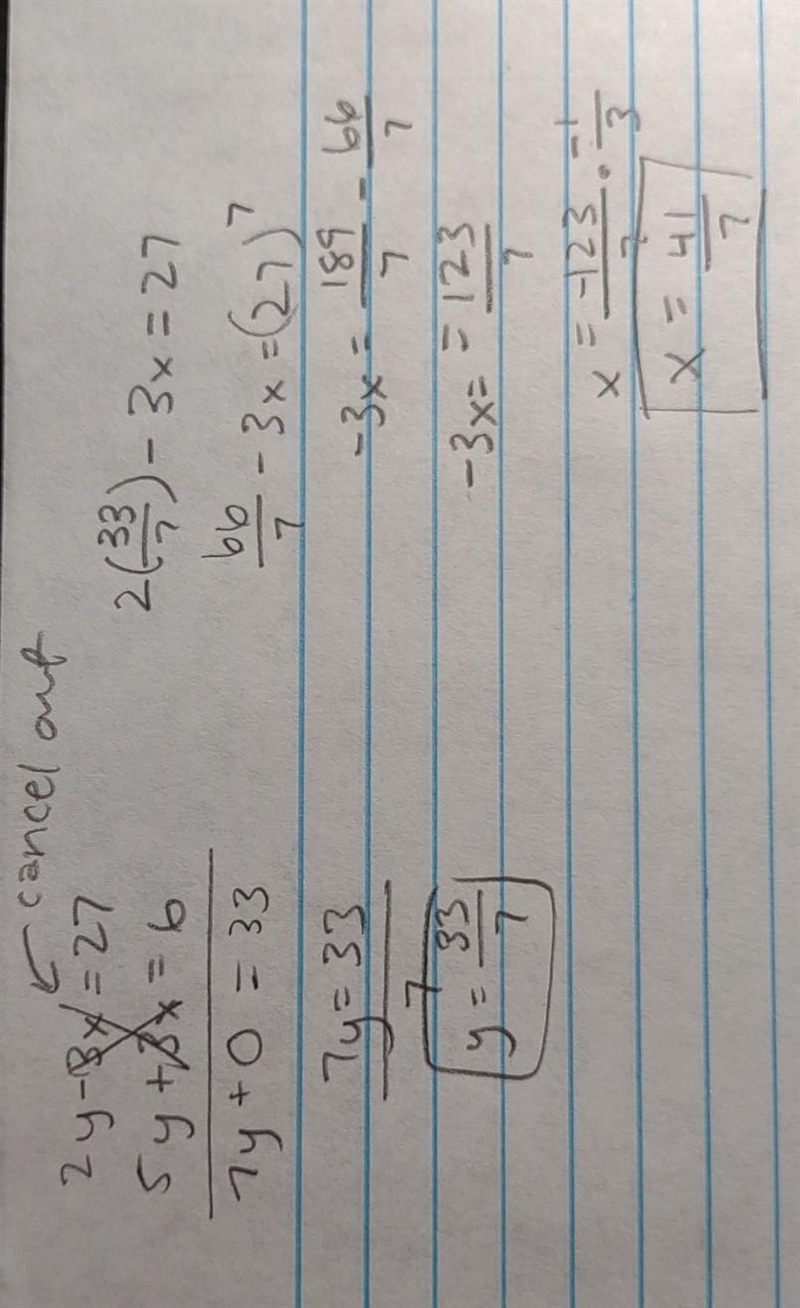 cancel out
2y-3x=27
5y+3x=6
7y+0=33
7y=33
7
y=33/7
2(33/7)-3x=27
66/7-3x=(27)7
-3x=189/7-66/7
-3x==123/7
x=-123/7·-1/3
x=41/7